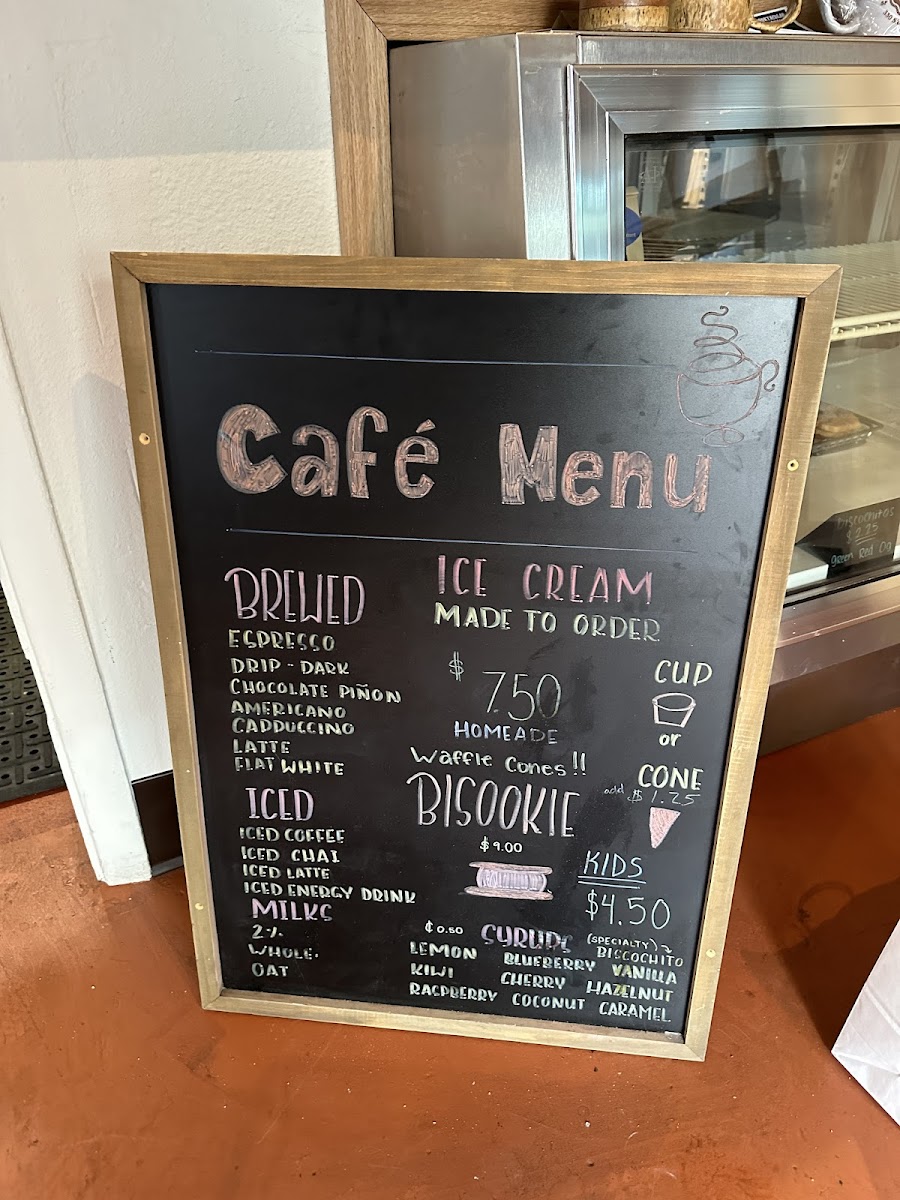 Café Menu
BREWED
ESPRESSO
DRIP - DARK
CHOCOLATE PIÑON
AMERICANO
CAPPUCCINO
LATTE
FLAT WHITE
ICED
ICED COFFEE
ICED CHAI
ICED LATTE
ICED ENERGY DRINK
MILKS
2%
WHOLE.
OAT
ICE CREAM
MADE TO ORDER
$ 7.50
HOMEADE
Waffle Cones!!
CUP
or
CONE
add $1.25
BISOOKIE
$9.00
KIDS
$4.50
¢0.50 SYRUPS (SPECIALTY)
LEMON BLUEBERRY BISCOCHITO
KIWI CHERRY VANILLA
RACPBERRY COCONUT HAZELNUT
CARAMEL
Biscochitos
Green Red Og